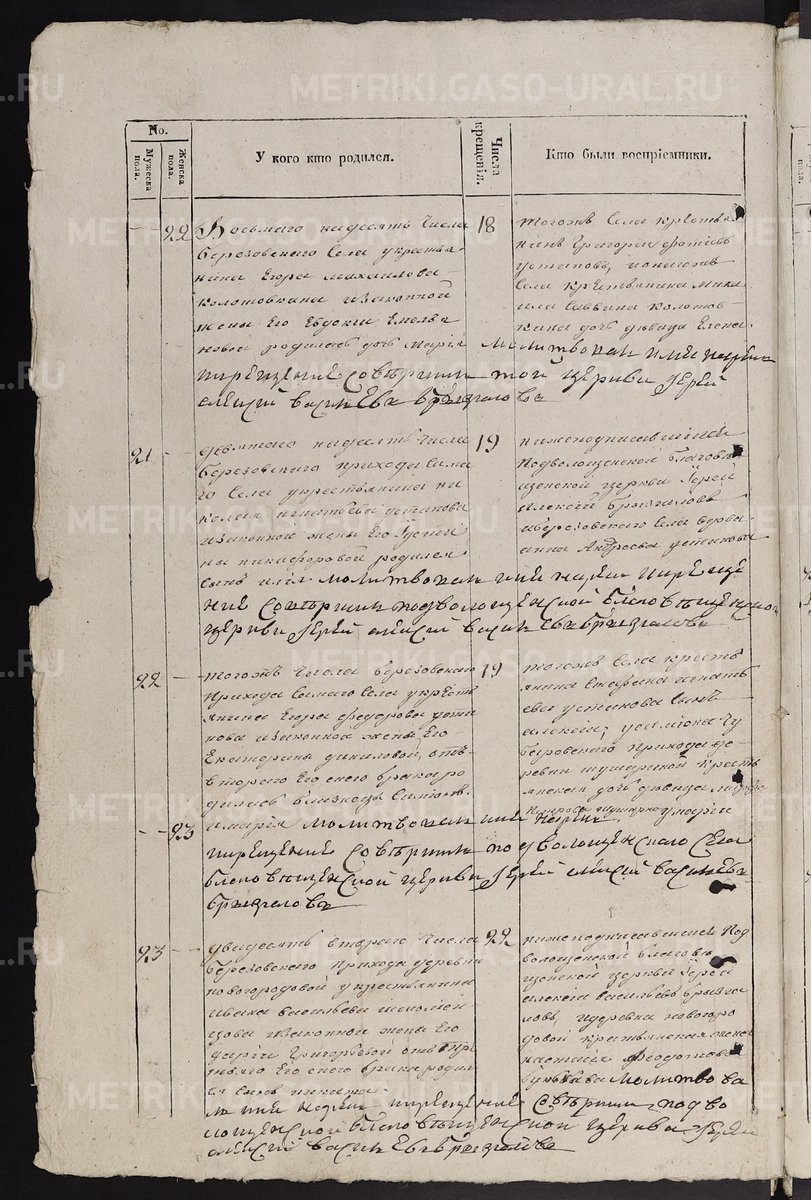 METRIKI.GASO-URAL.RU
No.
Мужеска пола.
Женска пола.
У кого кто родился.
Числа крещенія.
Кто были воспріемники.
22
Восьмаго надесять числа
березовскаго села укрестья
нина Егора Михаилова
колотовкина изаконной
жены Его Евдокеи Емелья
новой родилась дочь марія
18
тогожъ села крестья
нинъ григорій фотіевъ
устиновъ, и
села крестьянина миха
ила саввина колотов
кина дочь девица Елена
молитвовалъ имя нарекъ
икрещеніе совершилъ той церкви Іерей
алексій васильевъ брызгаловъ
21
девятаго надесять числа
березовскаго прихода сама
го села укрестьянина ни
колая игнатьева устинова
изаконной жены Его Іусти
ны никифоровой родился
сынъ илія
19
нижеподписавшійся
подволощенской благовѣ
щенской церкви Іерей
алексій брызгаловъ
иберезовскаго села вдова
анна Андреева устинова
молитвовалъ имя нарекъ икреще
ніе совершилъ подволощенской благовѣщенской
церкви Іерей алексій васильевъ брызгаловъ
22
тогожъ числа березовскаго
прихода самаго села укресть
янина Егора федорова усти
нова изаконной жены Его
Екатерины даниловой, отъ
втораго Его сего брака ро
дились близнецы симеонъ
имарія
23
19
тогожъ села кресть
янина Стефана игнать
ева устинова сынъ
алексій; усимеона чу
баровскаго прихода де
ревни шушариной кресть
янская дочь девица
умаріи
молитвовалъ имя нарекъ
икрещеніе совершилъ подволощенскаго села
благовѣщенской церкви Іерей алексій васильевъ
брызгаловъ
23
двадесять втораго числа
березовскаго прихода деревни
новогородовой укрестьянина
ивана васильева
изаконной жены Его
даріи григорьевой отъ пер
ваго Его сего брака родил
ся сынъ никита
22
нижеподписавшійся под
волощенской благовѣ
щенской церкви Іерей
алексій васильевъ брызга
ловъ, идеревни новогоро
довой крестьянская жена
настасія феодотова
молитвова
лъ имя нарекъ икрещеніе совершилъ подво
лощенской благовѣщенской церкви Іерей
алексій васильевъ брызгаловъ